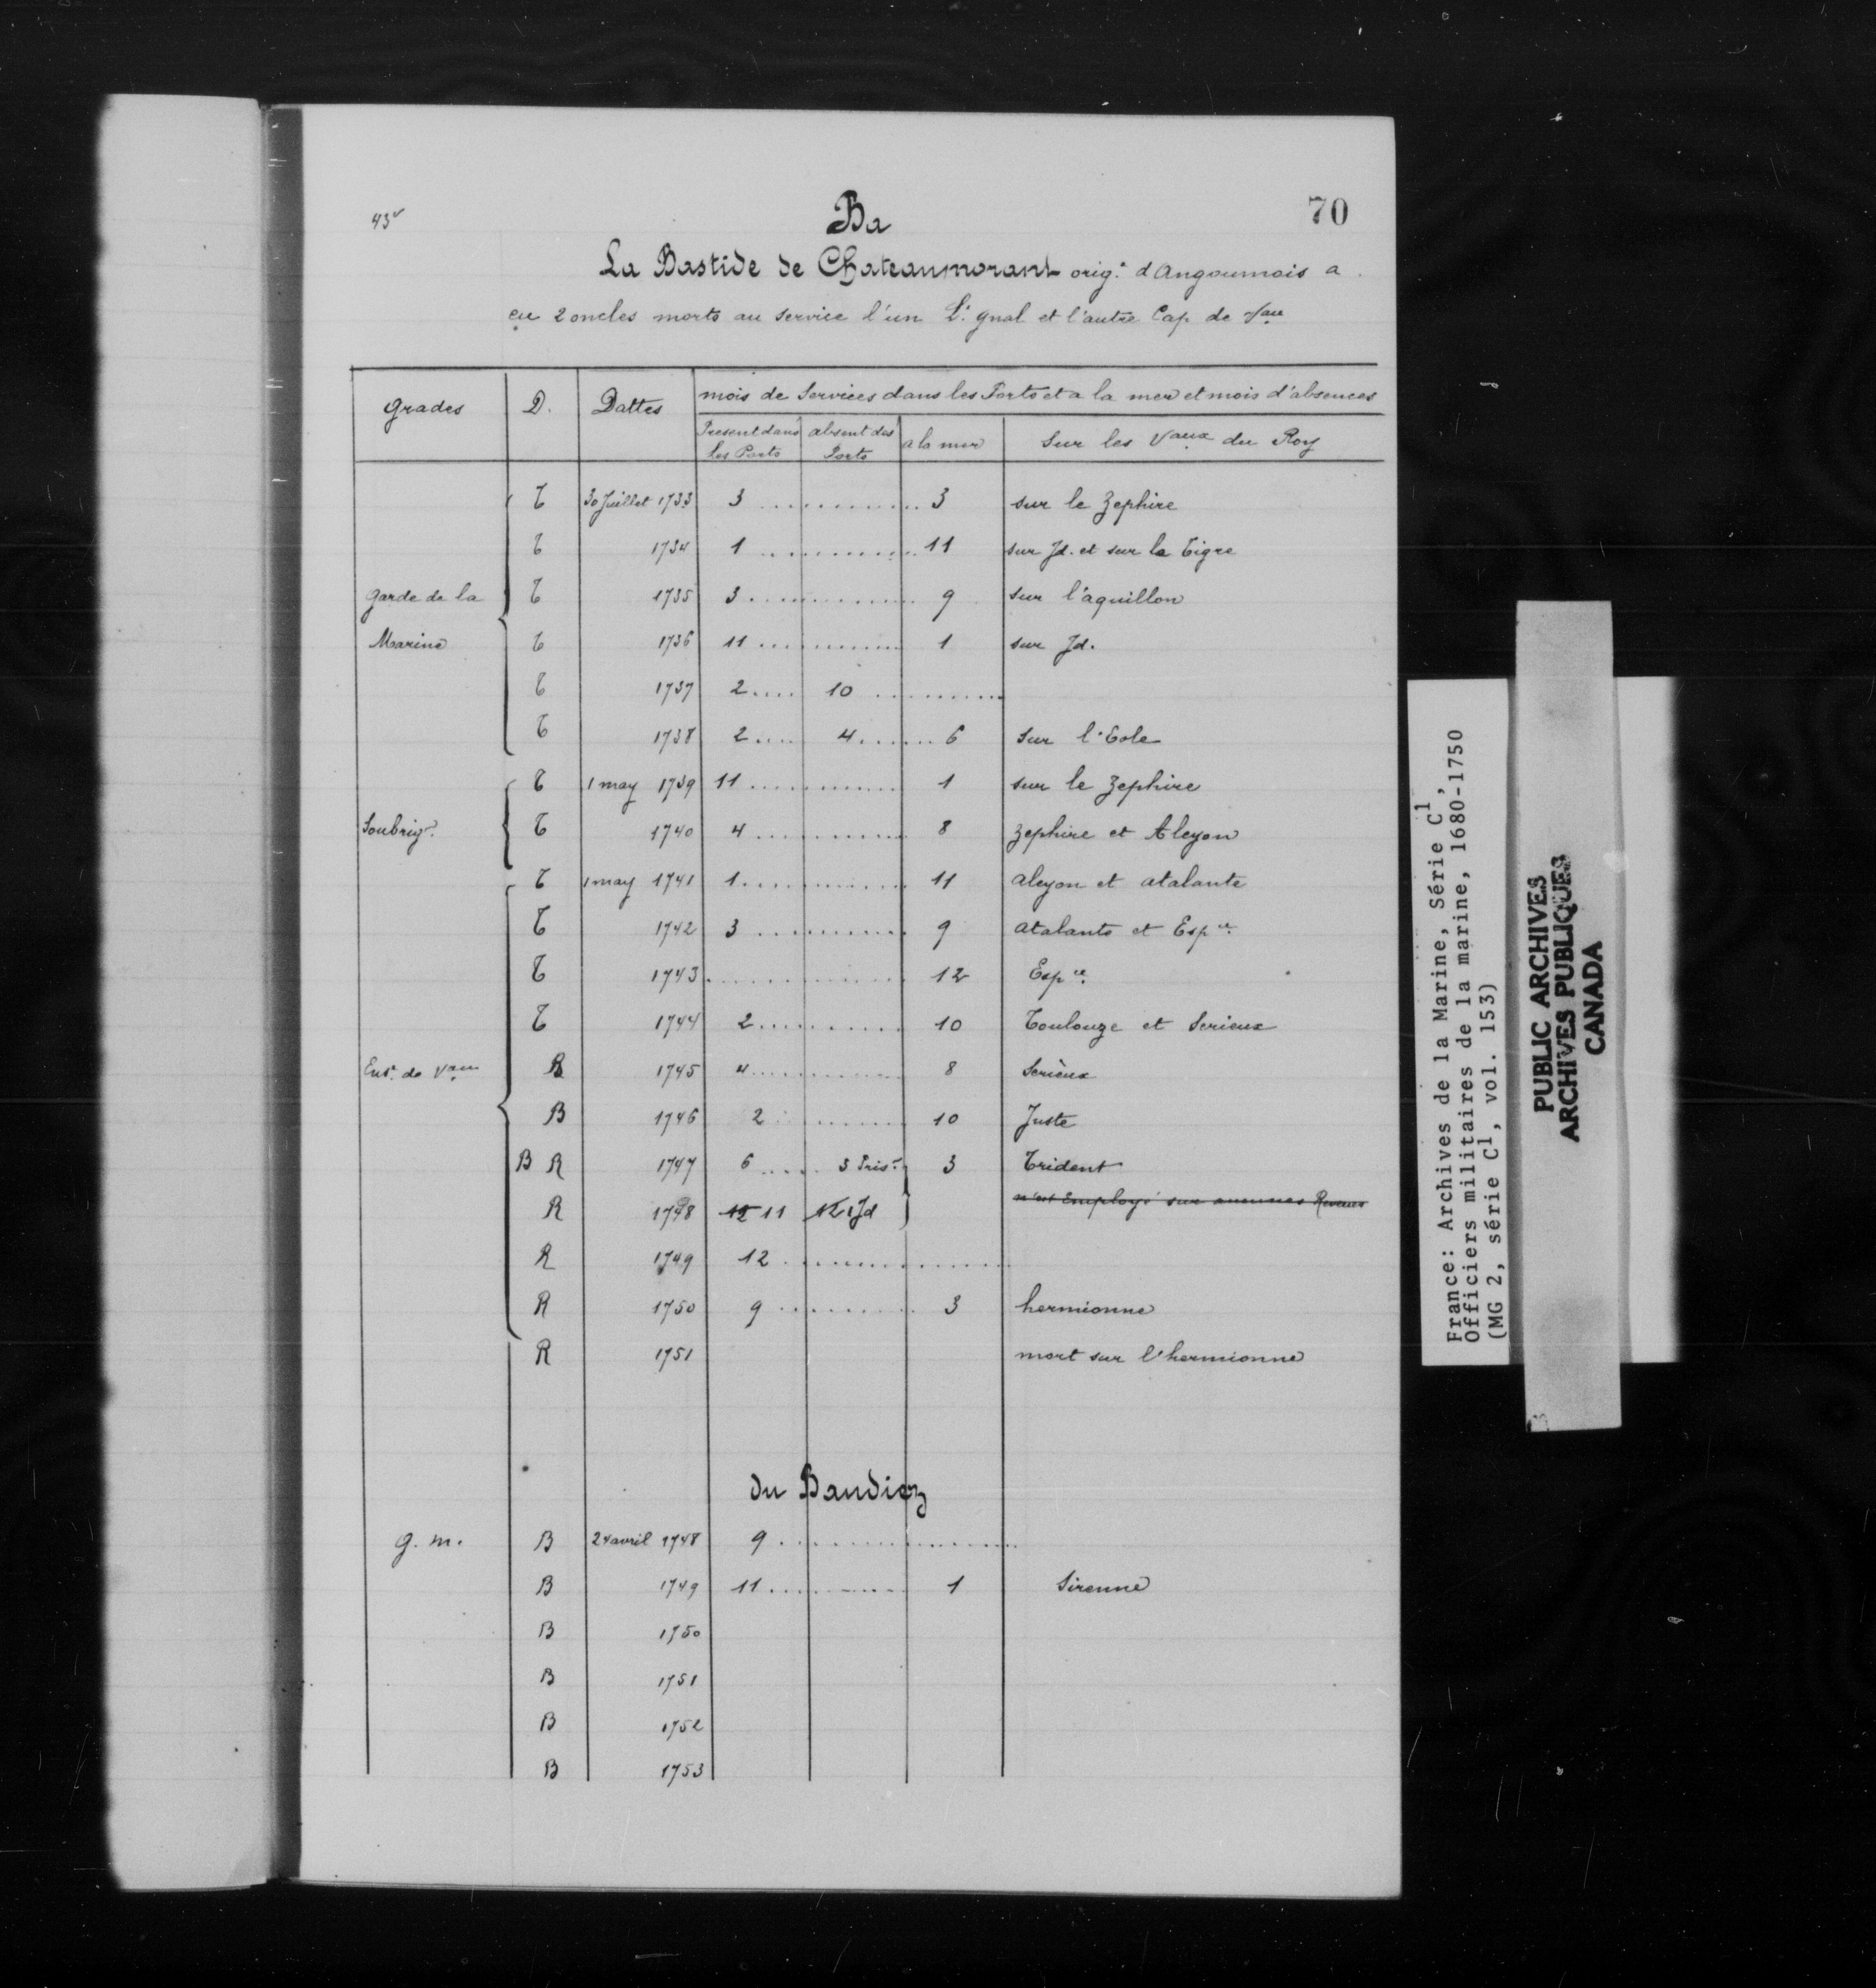 43v
Ba
70
La Bastide de Chateaumorant orig.e d'Angoumois a
eu 2 oncles morts au service l'un Lt gnal et l'autre Cap. de Vau
Grades D. Dattes mois de Services dans les Ports et a la mer et mois d'absences
Present dans les Ports absent des Ports a la mer Sur les Vaux du Roy
T 30 Juillet 1733 3 ............. 3 sur le Zephire
T 1734 1 ............. 11 sur Jd. et sur le Tigre
Garde de la T 1735 3 ............. 9 sur l'aquillon
Marine T 1736 11 ............. 1 sur Jd.
T 1737 2 .... 10 ..........
T 1738 2 .... 4 ....... 6 Sur l'Eole
T 1 may 1739 11 ............. 1 sur le Zephire
Soubrigr. T 1740 4 ............. 8 Zephire et Alcyon
T 1 may 1741 1 ............. 11 alcyon et atalante
T 1742 3 ............. 9 atalante et Espce.
T 1743 ............. 12 Espce.
T 1744 2 ............. 10 Toulouze et Serieux
Ens. de Vau R 1745 4 ............. 8 Serieux
B 1746 2 ......... 10 Juste
B R 1747 6 ..... 3 Prisr 3 Trident
R 1748 12 11 12 1 Jd n'est Employé sur aucunes Revues
R 1749 12 .............
R 1750 9 ............. 3 hermionne
R 1751 mort sur l'hermionne
du Baudiez
g. m. B 24 avril 1748 9 .............
B 1749 11 ............. 1 Sirenne
B 1750
B 1751
B 1752
B 1753
France: Archives de la Marine, Série C1,
Officiers militaires de la marine, 1680-1750
(MG 2, série C1, vol. 153)
PUBLIC ARCHIVES
ARCHIVES PUBLIQUES
CANADA